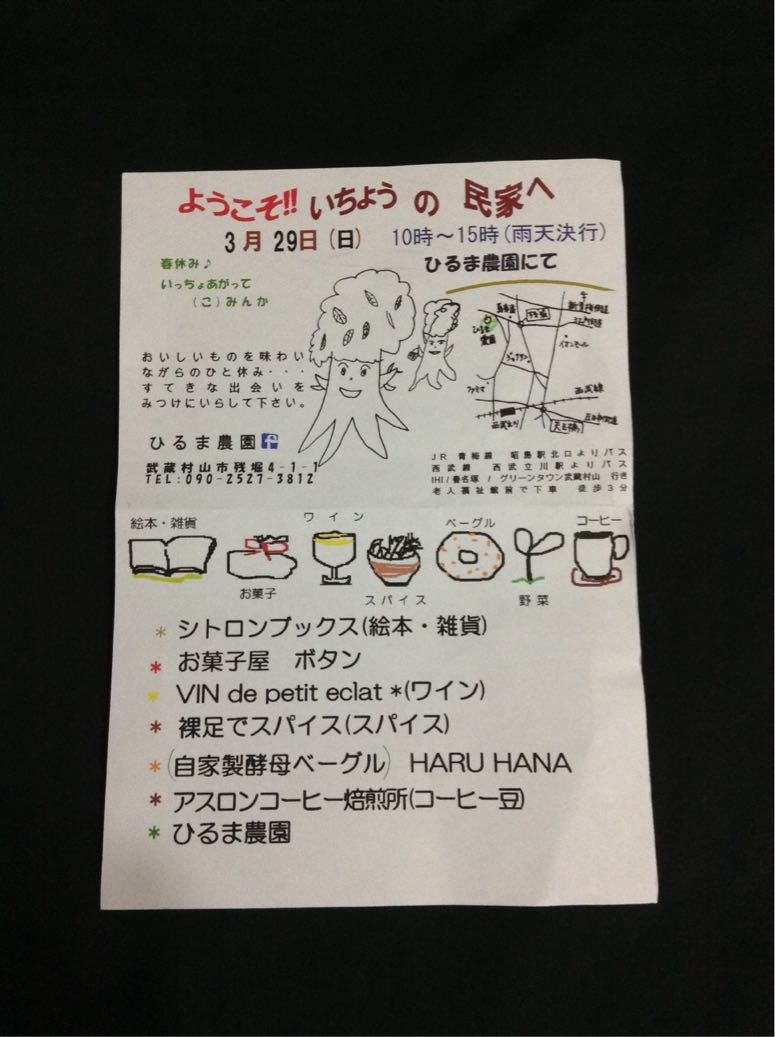 ようこそ!! いちょう の 民家へ
3月 29日 (日) 10時～15時(雨天決行)
ひるま農園にて
春休み♪
いっちょあがって
(こ)みんか
おいしいものを味わい
ながらのひと休み・・・
すてきな出会いを
みつけにいらして下さい。
ひるま農園
武蔵村山市残堀4-1-1
TEL:090-2527-3812
イオンモール
ファミマ
西武線
天王橋
JR 青梅線 昭島駅北口よりバス
西武線 西武立川駅よりバス
IHI/春名塚 / グリーンタウン武蔵村山 行き
老人福祉館前で下車 徒歩3分
絵本・雑貨
お菓子
ワイン
スパイス
ベーグル
野菜
コーヒー
* シトロンブックス(絵本・雑貨)
* お菓子屋 ボタン
* VIN de petit eclat *(ワイン)
* 裸足でスパイス(スパイス)
* (自家製酵母ベーグル) HARU HANA
* アスロンコーヒー焙煎所(コーヒー豆)
* ひるま農園